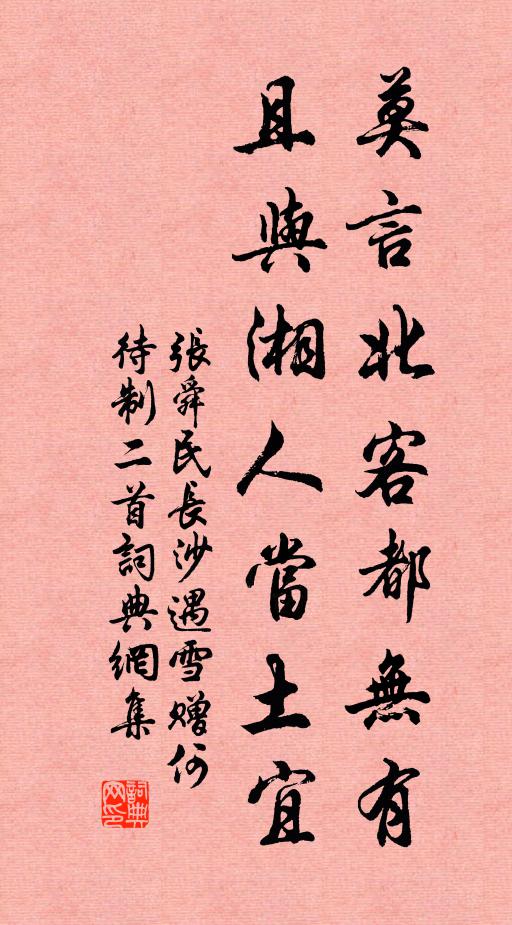 莫言北客都無有
且與湘人當土宜
張舜民長沙遇雪贈何
待制二首詞典網集
詞典网印